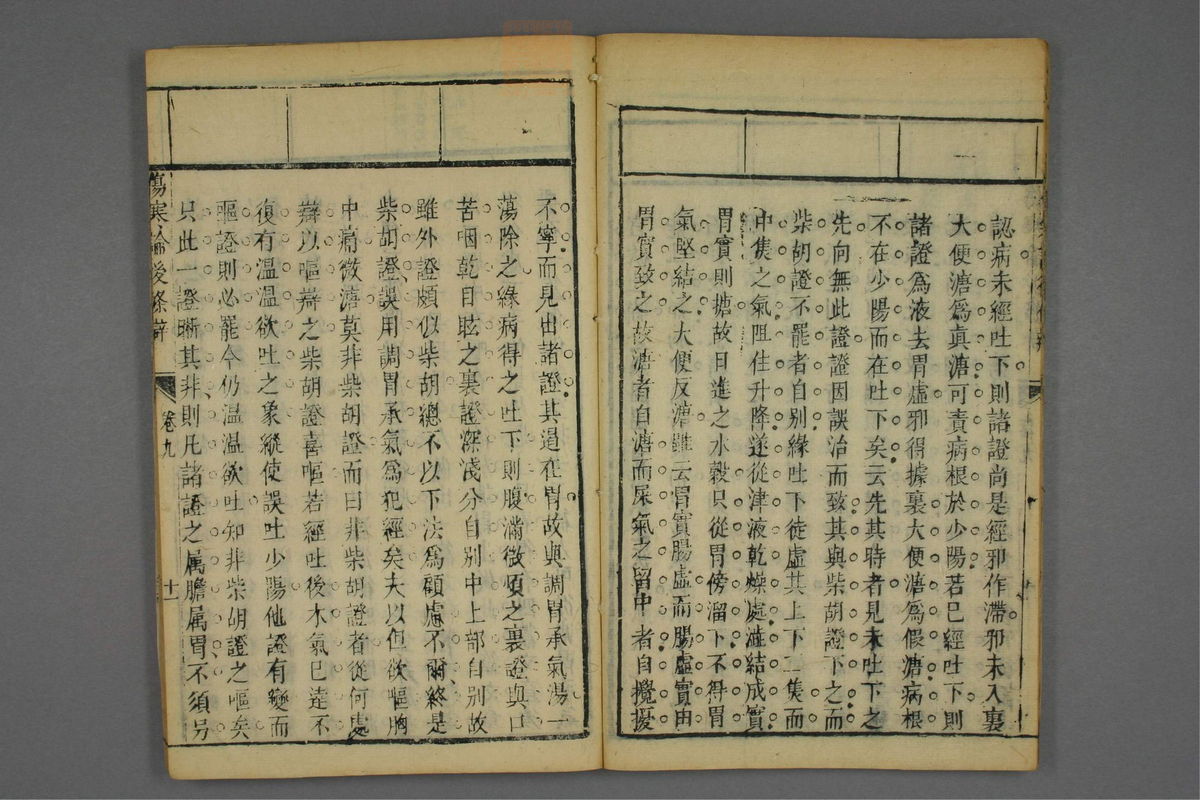 認病未經吐下則諸證尚是經邪作滯邪未入裏
大便溏爲真溏可責病根於少陽若已經吐下則
諸證爲液去胃虛邪得據裏大便溏爲假溏病根
不在少陽而在吐下矣云先其時者見未吐下之
先向無此證證因誤治而致其與柴胡證下之而
柴胡證不罷者自別緣吐下徒虛其上下二焦而
中焦之氣阻住升降遂從津液乾燥處澁結成實
胃實則搪故日進之水穀只從胃傍溜下不得胃
氣堅結之大便反溏雖云胃實腸虛而腸虛實由
胃實致之故溏者自溏而屎氣之留中者自攪擾
不寧而見出諸證其過在胃故與調胃承氣湯一
蕩除之緣病得之吐下則腹滿微煩之裏證與口
苦咽乾目眩之裏證深淺分自別中上部自別故
雖外證頗似柴胡總不以下法爲顧慮不爾終是
柴胡證誤用調胃承氣爲犯經矣夫以但欲嘔胸
中痛微溏莫非柴胡證而曰非柴胡證者從何處
辯以嘔辯之柴胡證喜嘔若經吐後木氣已達不
復有温温欲吐之象縱使誤吐少陽他證有變而
嘔證則必罷今仍温温欲吐知非柴胡證之嘔矣
只此一證晰其非則凡諸證之属膽属胃不須另
傷寒論後條辯
卷九
十一